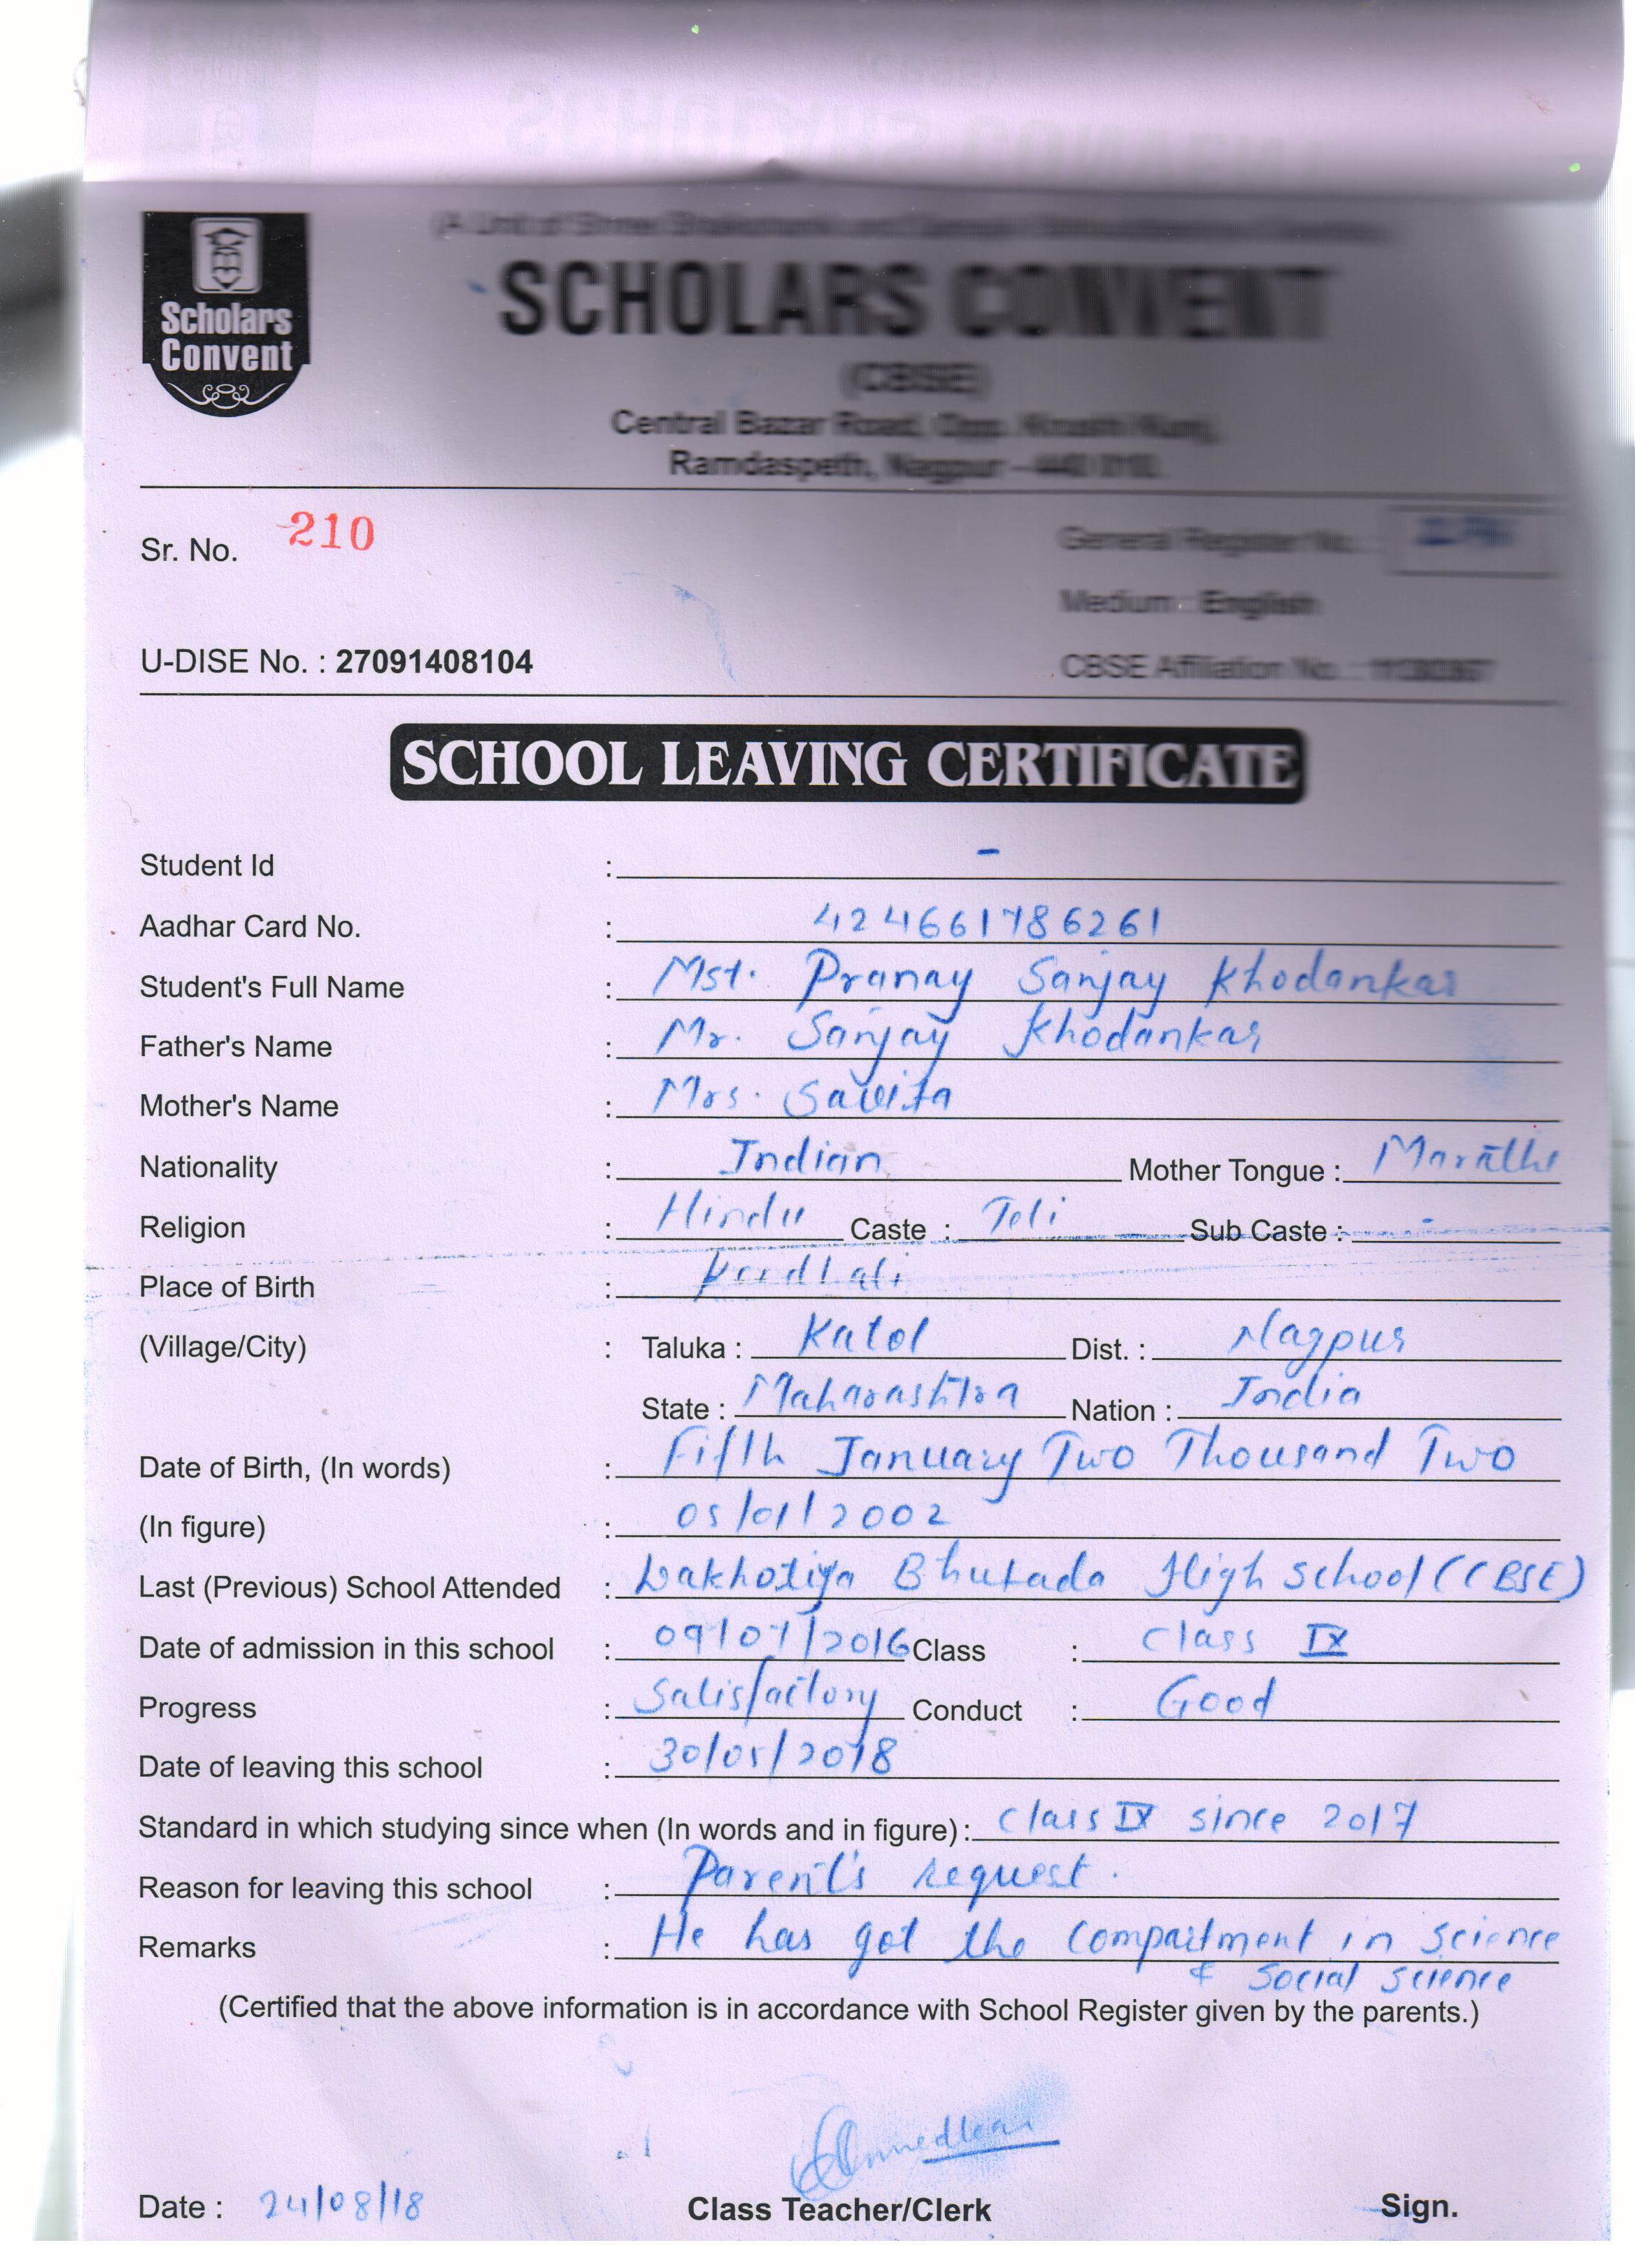 Scholars
Convent
SCHOLARS CONVENT
(CBSE)
Central Bazar Road, Opp.
Ramdaspeth, Nagpur - 440 010.
Sr. No. 210
General Register No. :
Medium : English
U-DISE No. : 27091408104
CBSE Affiliation No. :
SCHOOL LEAVING CERTIFICATE
Student Id : -
Aadhar Card No. : 424661786261
Student's Full Name : Mst. Pranay Sanjay Khodankar
Father's Name : Mr. Sanjay Khodankar
Mother's Name : Mrs. Savita
Nationality : Indian Mother Tongue : Marathi
Religion : Hindu Caste : Teli Sub Caste : -
Place of Birth :
(Village/City) : Taluka : Katol Dist. : Nagpur
State : Maharashtra Nation : India
Date of Birth, (In words) : Fifth January Two Thousand Two
(In figure) : 05/01/2002
Last (Previous) School Attended : Lakhotiya Bhutada High School (CBSE)
Date of admission in this school : 09/07/2016 Class : Class IX
Progress : Satisfactory Conduct : Good
Date of leaving this school : 30/05/2018
Standard in which studying since when (In words and in figure) : Class IX since 2017
Reason for leaving this school : Parent's request.
Remarks : He has got the compartment in Science
& Social Science
(Certified that the above information is in accordance with School Register given by the parents.)
Date : 24/08/18 Class Teacher/Clerk Sign.